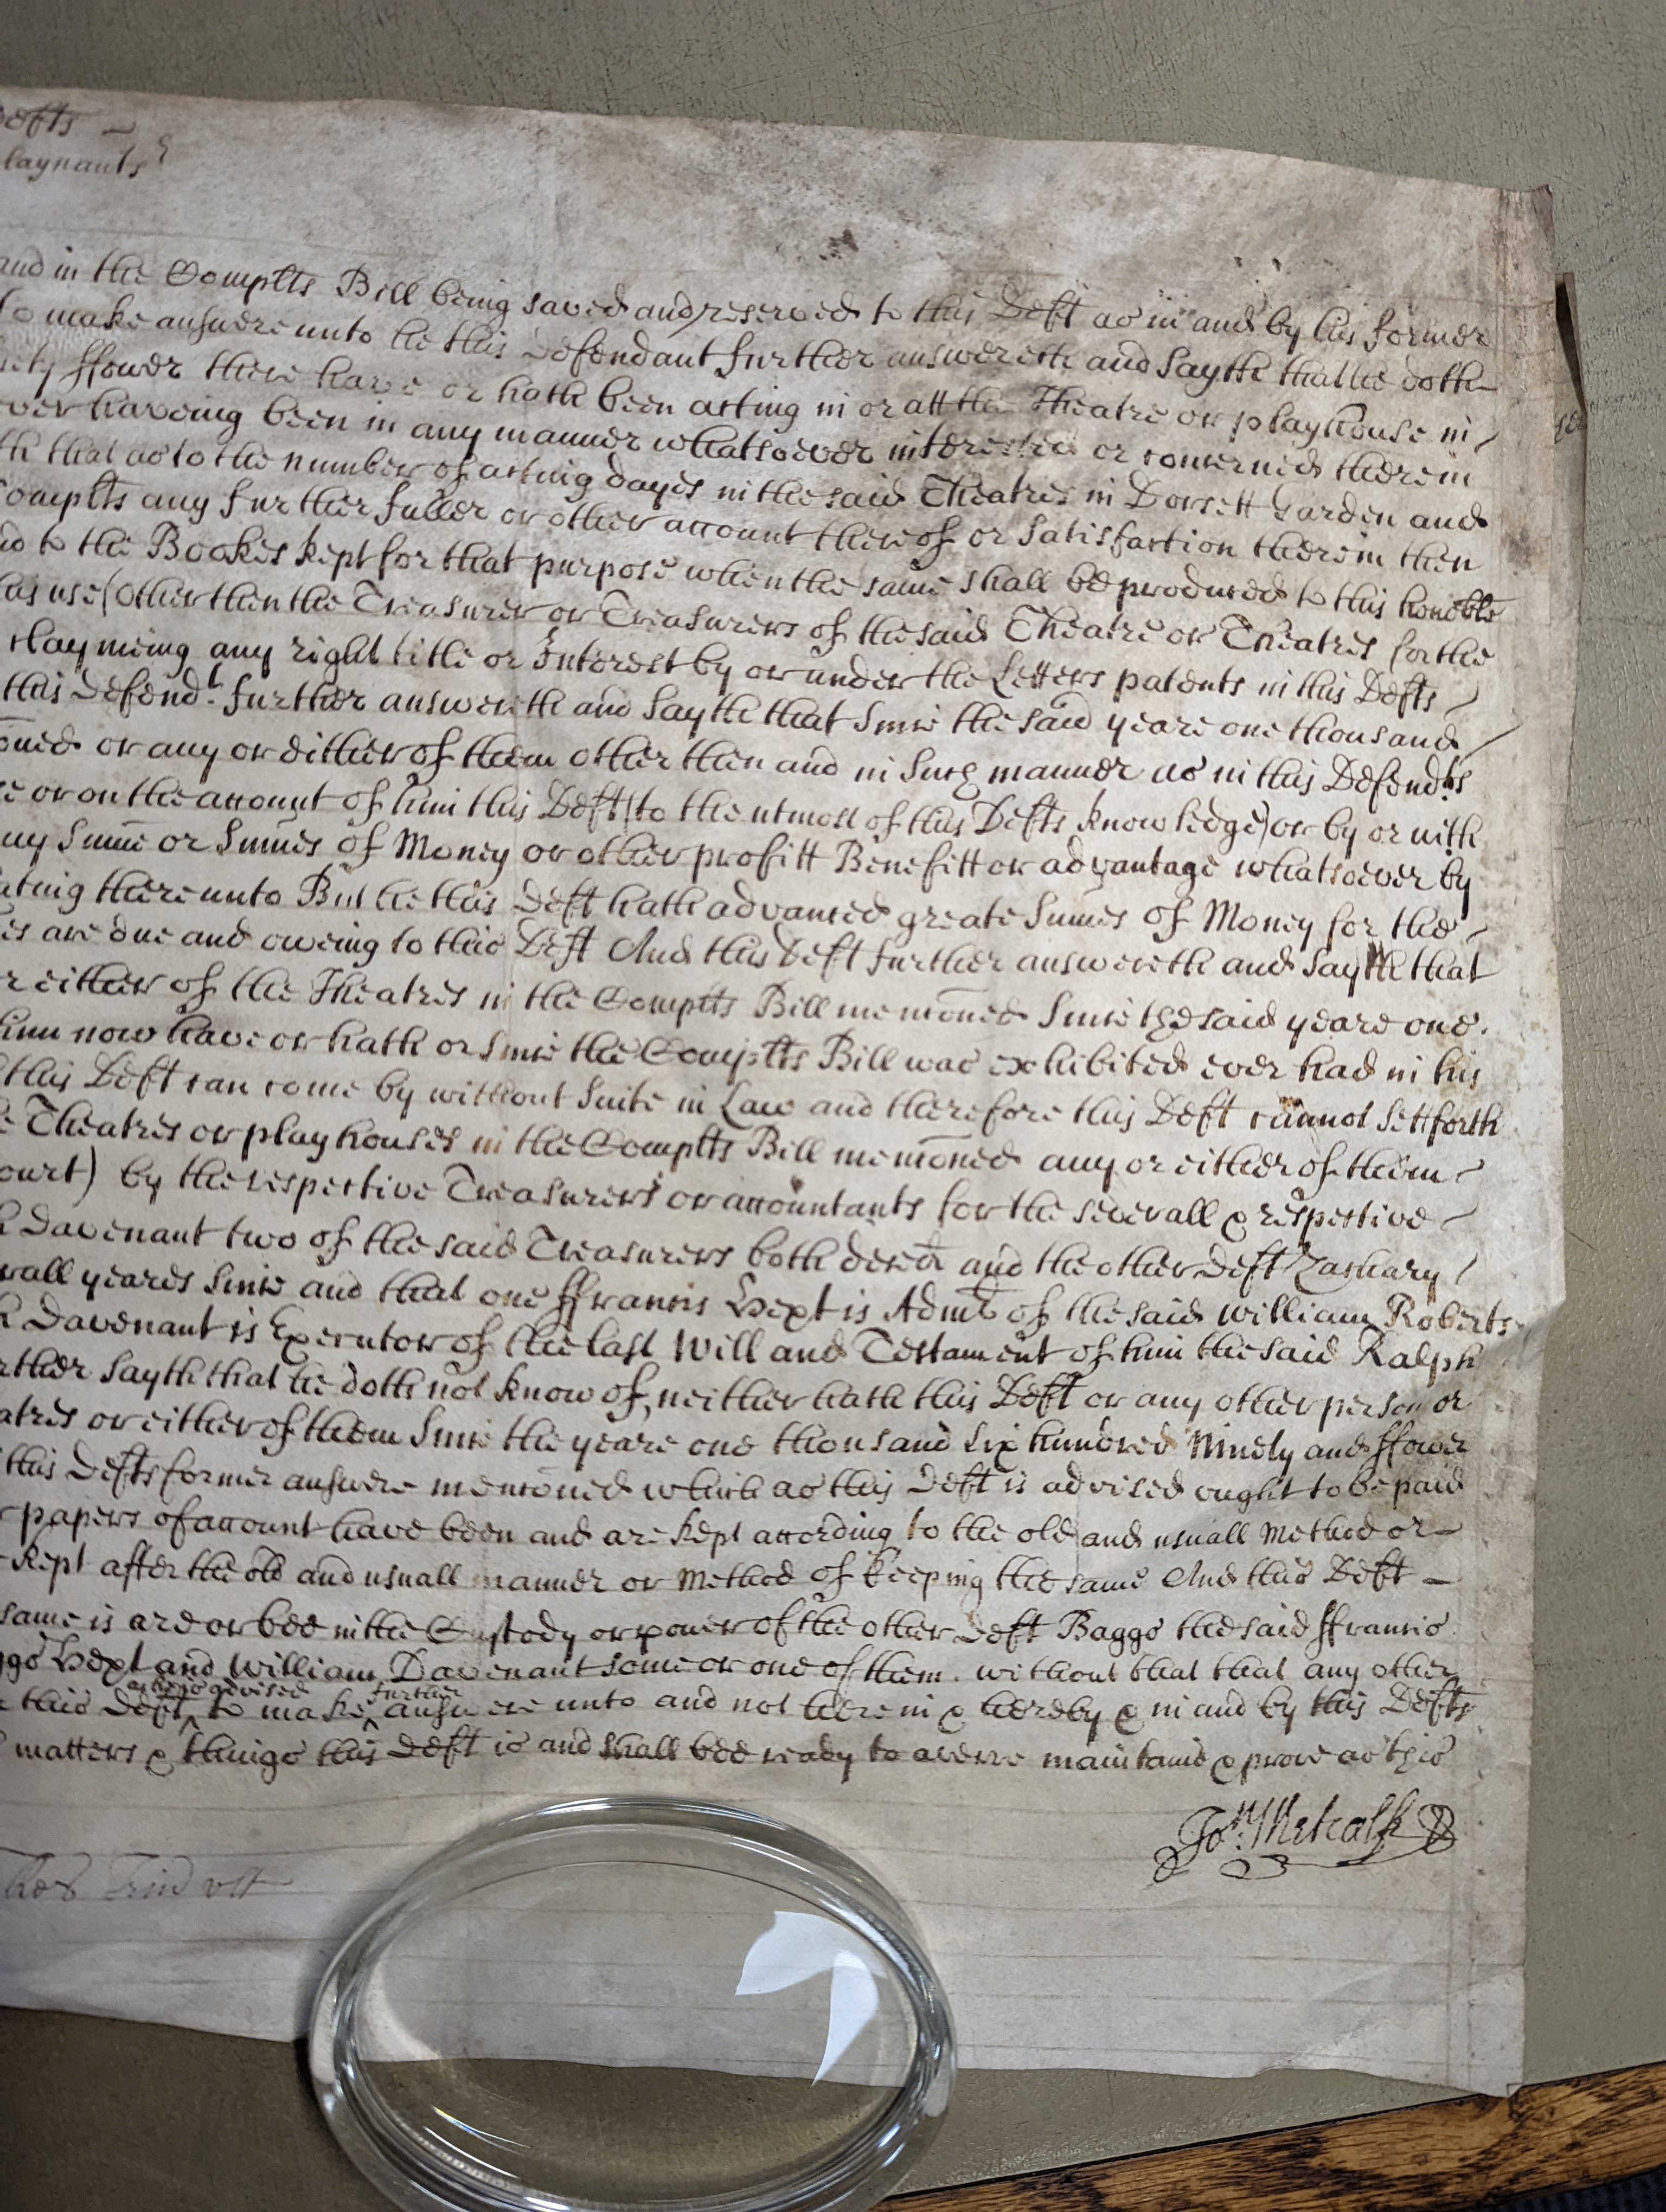 Defts
laynants
and in the Complts Bill being saved and reserved to this Deft as in and by his former
To make answere unto he this Defendant further answereth and Sayth that he doth
ety ffower there have or hath been acting in or att the Theatre or playhouse in
ver haveing been in any manner whatsoever interested or concerned therein
th that as to the number of acting dayes in the said Theatres in Dorsett Garden and
Complts any further fuller or other account thereof or Satisfaction therein then
to the Bookes kept for that purpose when the same shall be produced to this honoble
as use (other then the Treasurer or Treasurers of the said Theatre or Theatres for the
claymeing any right title or Interest by or under the Letters patents in this Defts
this Defendt. further answereth and Sayth that Since the said yeare one thousand
oned or any or either of them other then and in Such manner as in this Defendts
e or on the account of him this Deft (to the utmost of this Defts knowledge) or by or with
ny Sume or Sumes of Money or other profitt Benefitt or advantage whatsoever by
ating thereunto But he this Deft hath advanced greate Sumes of Money for the
es are due and oweing to this Deft And this Deft further answereth and Sayth that
r either of the Theatres in the Complts Bill menconed Since the said yeare one
him now have or hath or Since the Complts Bill was exhibited ever had in his
this Deft can come by without Suite in Law and therefore this Deft cannot Sett forth
e Theatres or playhouses in the Complts Bill menconed any or either of them
ourt) by the respective Treasurers or accountants for the severall & respective
h Davenant two of the said Treasurers both decd and the other Deft Zachary
rall yeares Since and that one ffrancis Hext is Admr of the said William Roberts
h Davenant is Executor of the last Will and Testament of him the said Ralph
rther Sayth that he doth not know of, neither hath this Deft or any other person or
atres or either of them Since the yeare one thousand Six hundred Ninety and ffower
this Defts former answere menconed which as this Deft is advised ought to be paid
papers of account have been and are kept according to the old and usuall Method or
kept after the old and usuall manner or Method of keeping the same And this Deft
same is are or bee in the Custody or power of the other Deft Baggs the said ffrancis
ggs Hext and William Davenant some or one of them. without that that any other
this Deft as he is advised to make further answere unto and not herein & hereby & in and by this Defts
matters & things this Deft is and shall bee ready to averre maintaine & prove as this
Jon. Metcalfe